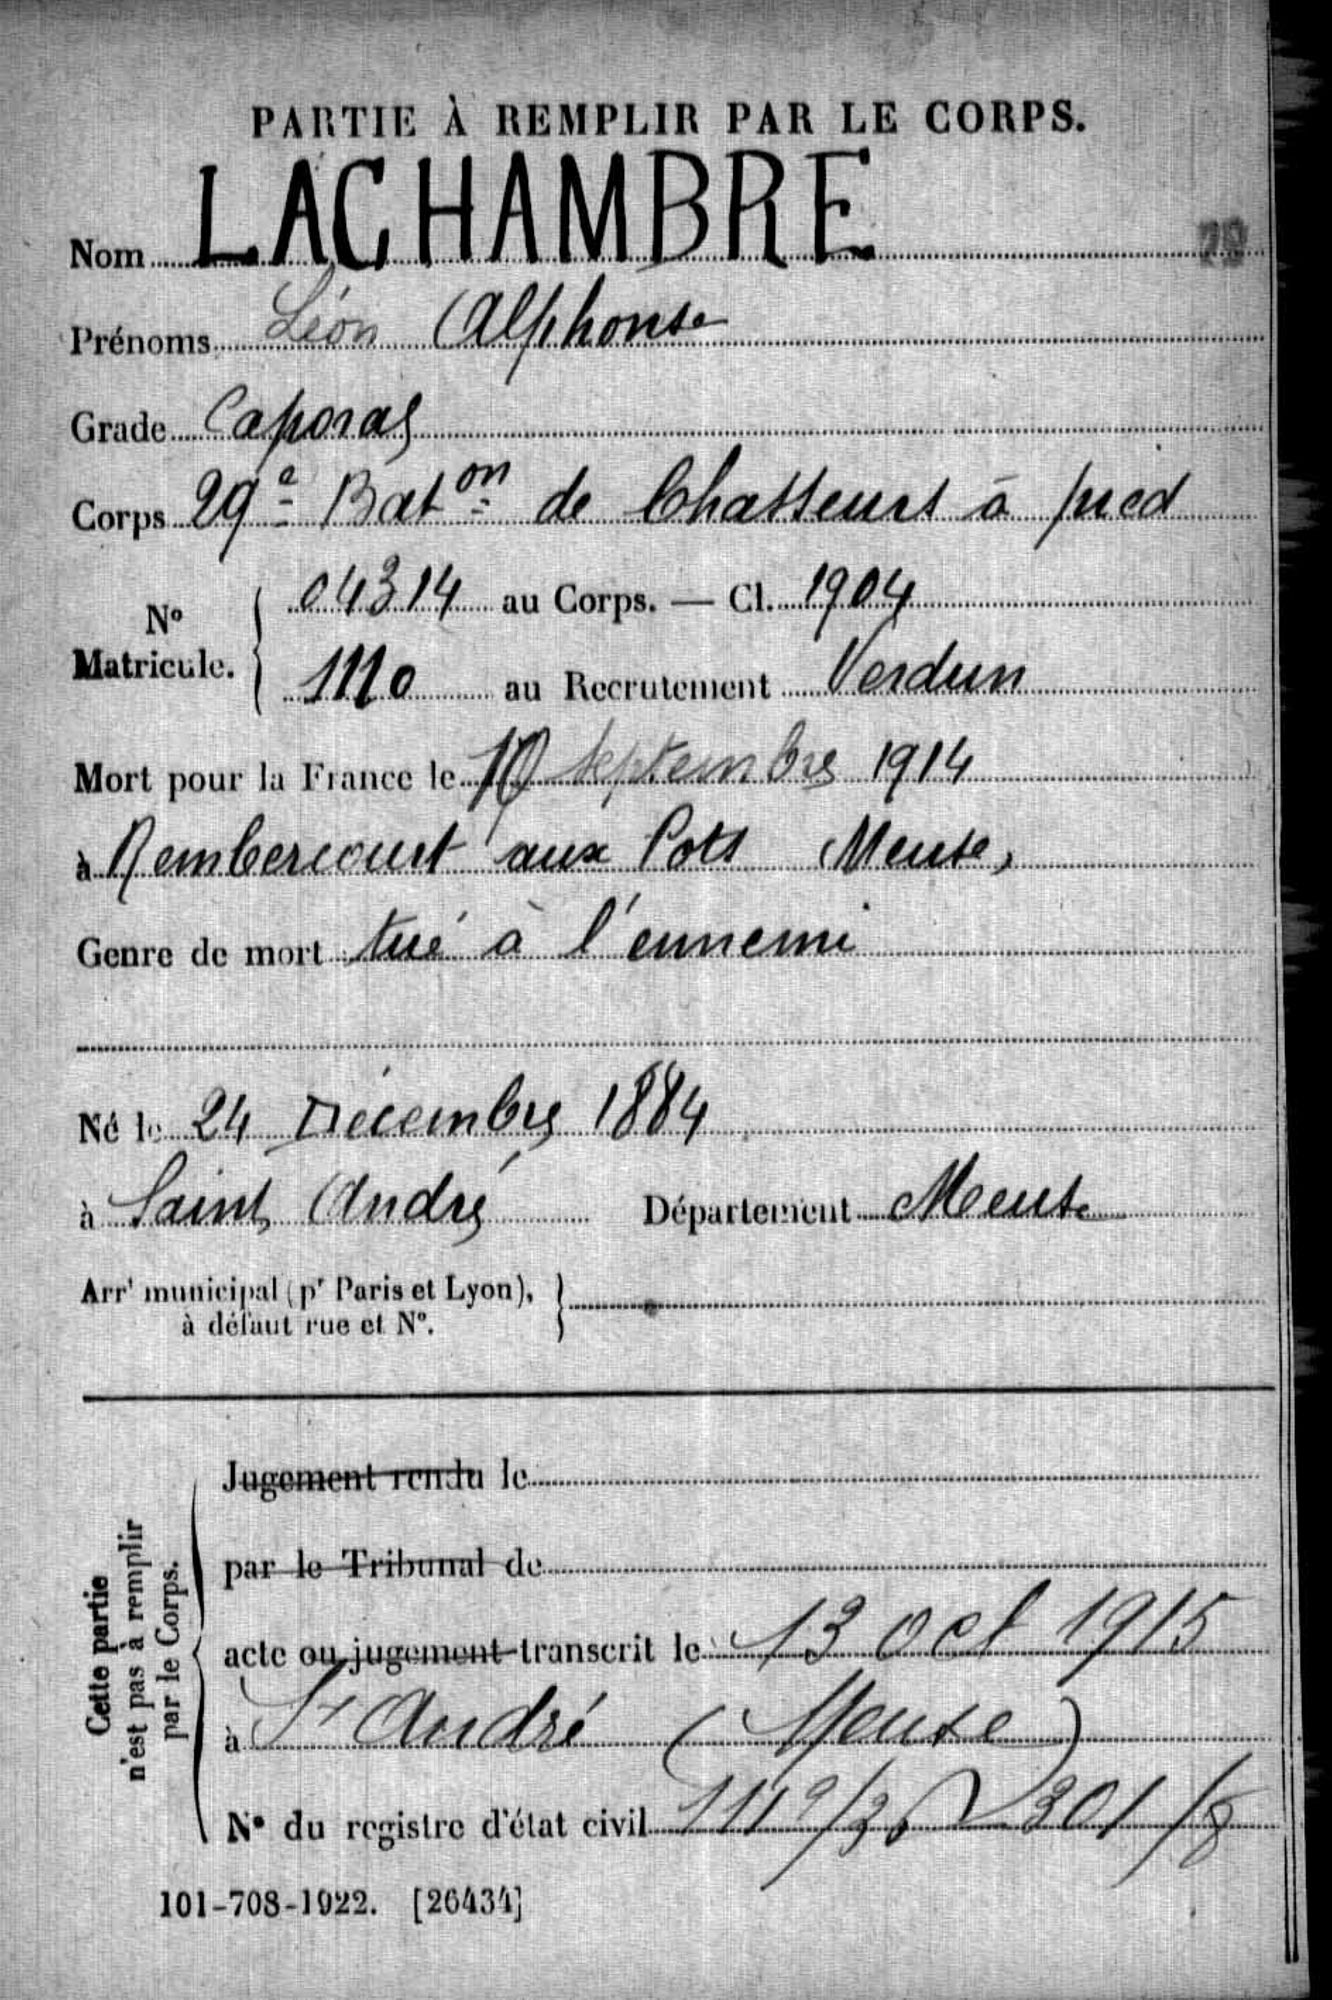 PARTIE À REMPLIR PAR LE CORPS.
Nom LACHAMBRE
Prénoms Léon Alphonse
Grade Caporal
Corps 29e Baton de Chasseurs à pied
No Matricule. 04314 au Corps. — Cl. 1904
1110 au Recrutement Verdun
Mort pour la France le septembre 1914
à Rembercourt aux Pots Meuse,
Genre de mort tué à l'ennemi
Né le 24 Décembre 1884
à Saint André Département Meuse
Arrt municipal (pr Paris et Lyon),
à défaut rue et No.
Cette partie
n'est pas à remplir
par le Corps.
Jugement rendu le
par le Tribunal de
acte ou jugement transcrit le 13 oct 1915
à St André (Meuse)
No du registre d'état civil
101-708-1922. [26434]